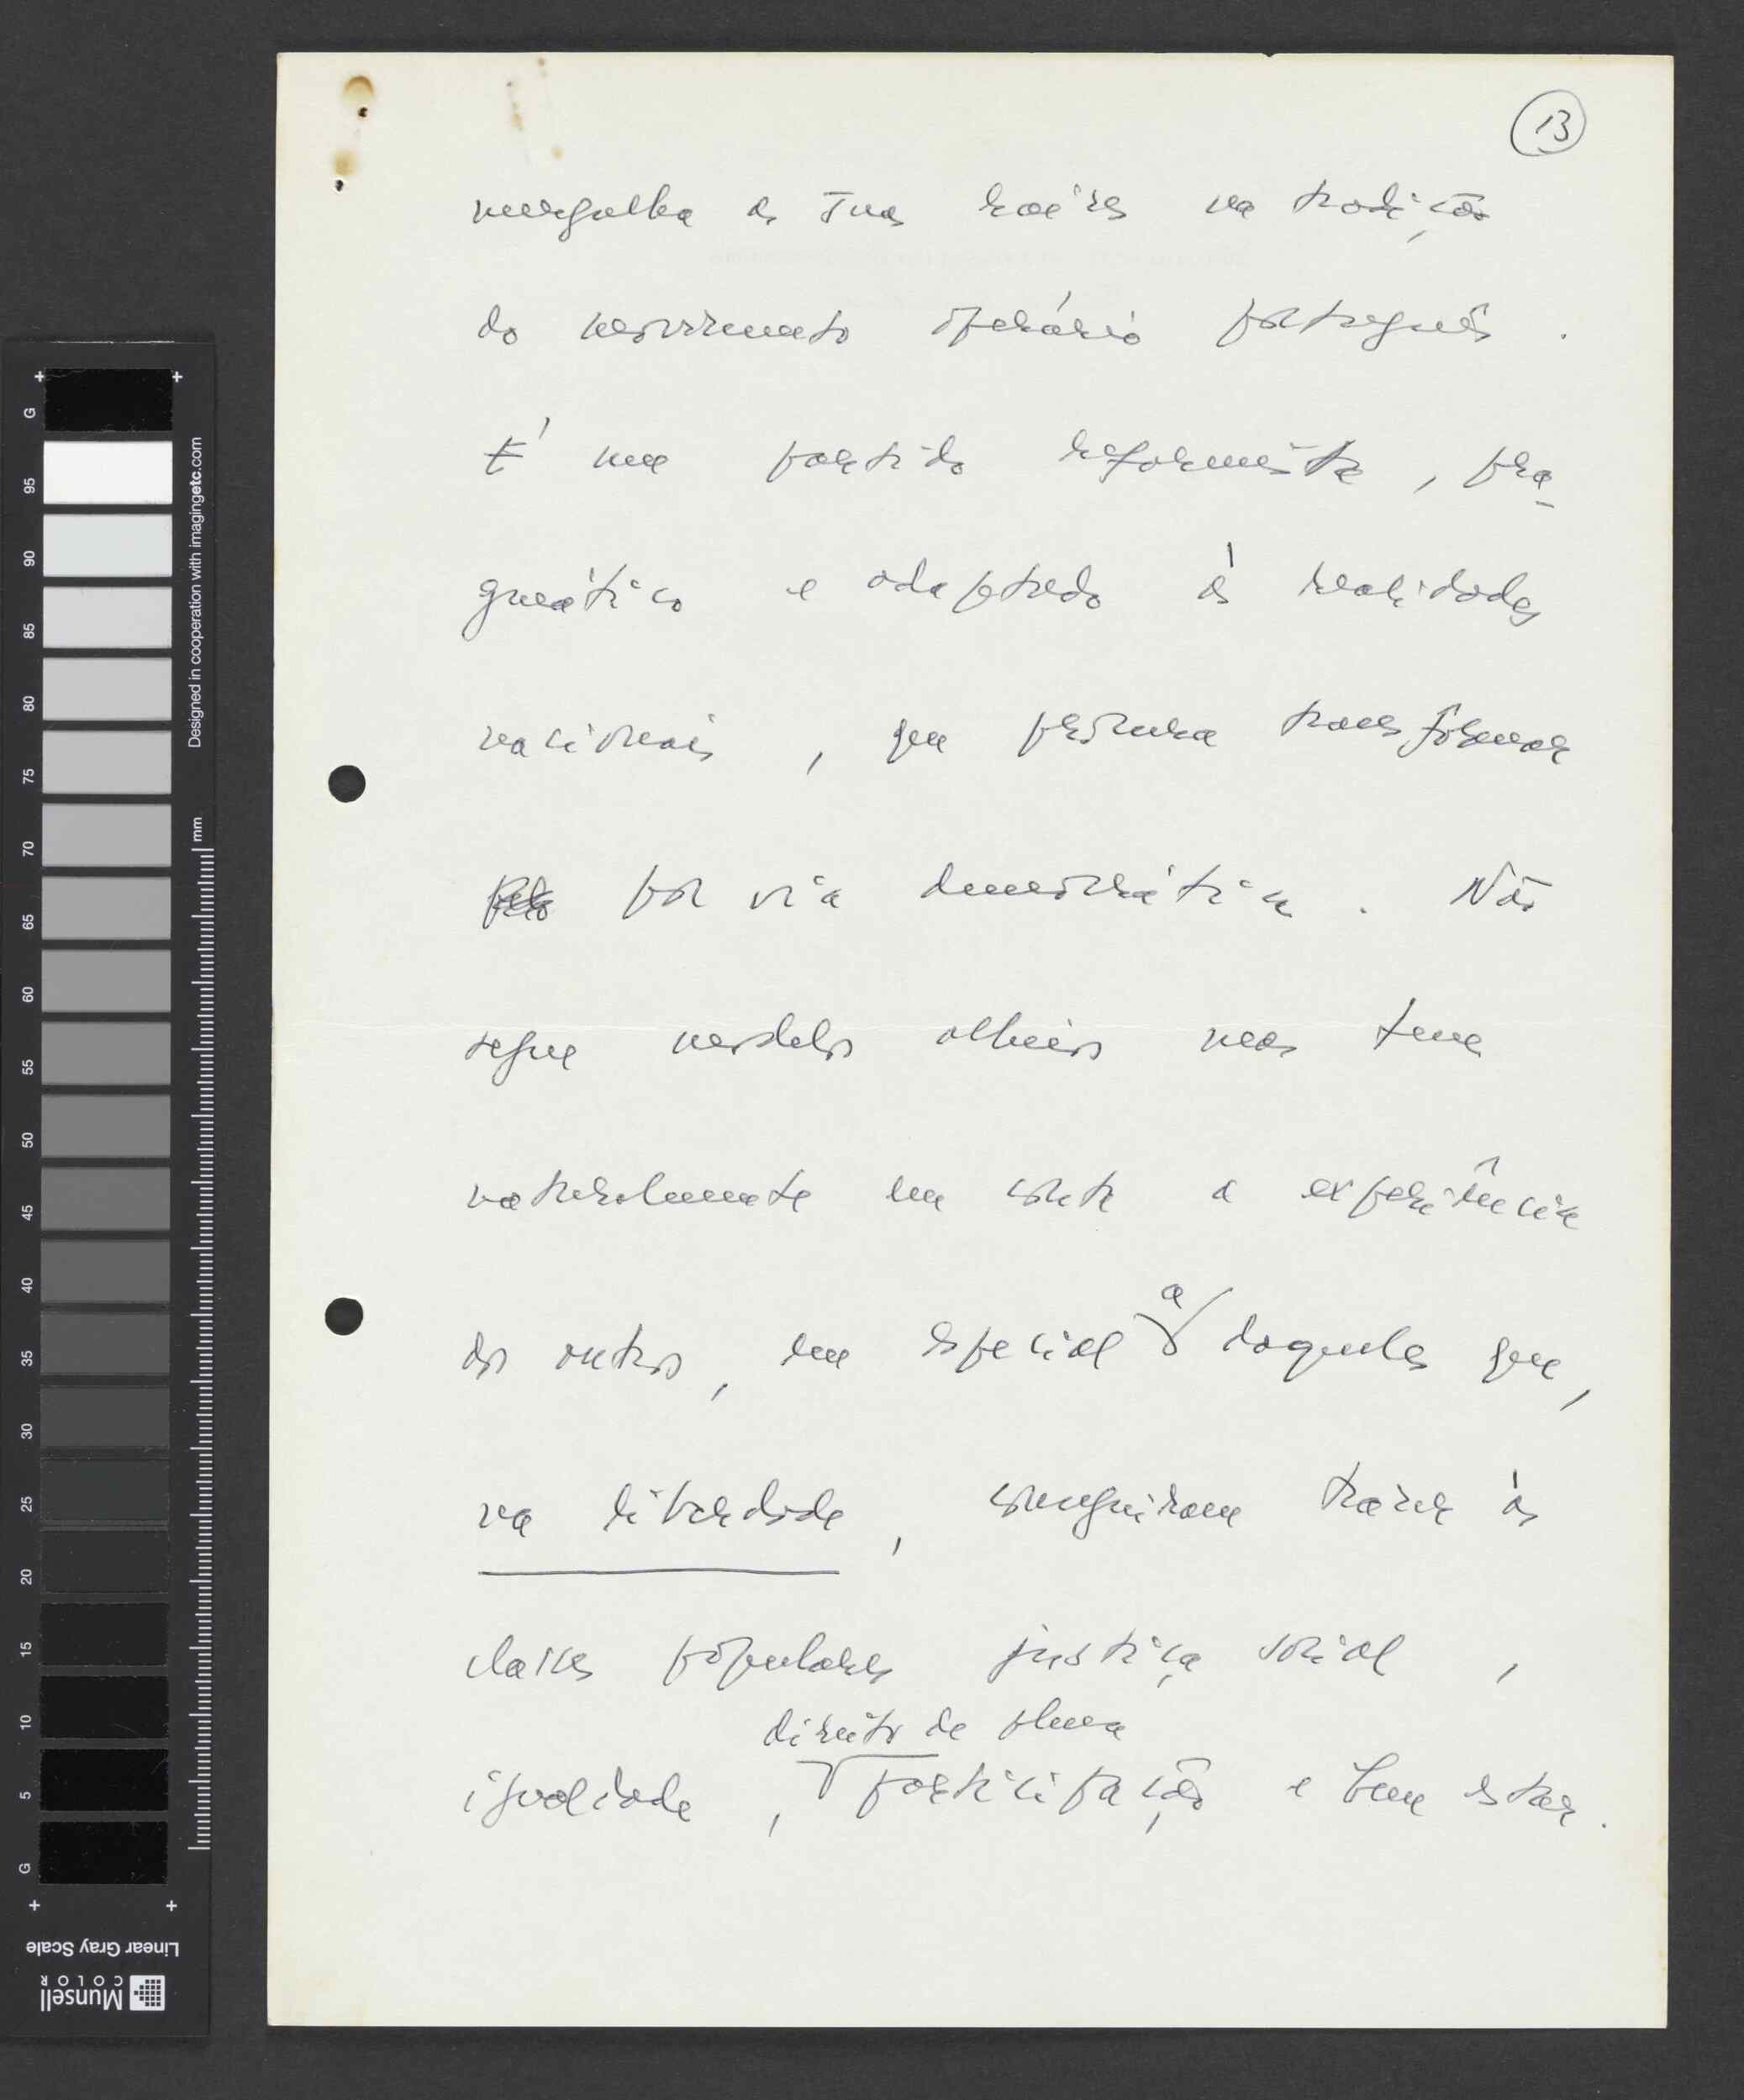 13
mergulha as suas raízes na tradição
do movimento operário português.
É um partido reformista, pra-
gmático e adaptado às realidades
nacionais, que procura transformar
por via democrática. Não
segue modelos alheios mas tem
naturalmente em conta a experiência
a
dos outros, em especial daqueles que,
na liberdade, conseguiram trazer às
classes populares justiça social,
direito de plena
igualdade, participação e bem estar.
G
95
90
85
80
75
70
65
60
55
50
45
40
35
30
25
20
15
10
5
G
mm
Designed in cooperation with imagingetc.com
Linear Gray Scale
Munsell
COLOR